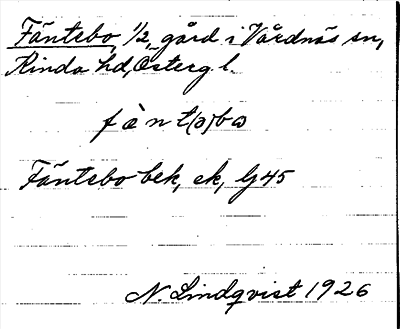 Fäntebo, 1/2, gård i Vårdnäs sn,
Kinda hd, Österg. l.
fànt(ə)bo
Fäntebo bek, ek, Gj 45
N. Lindqvist 1926